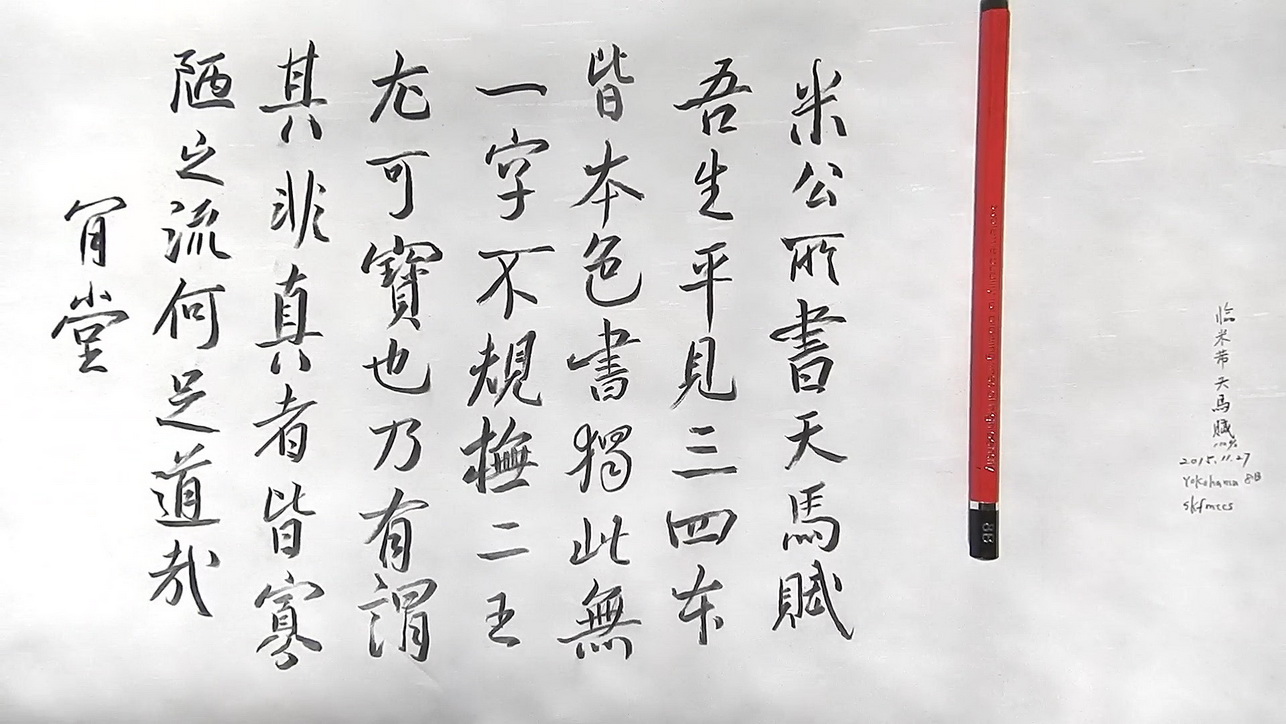 米公所書天馬賦
吾生平見三四本
皆本色書獨此無
一字不規橅二王
尤可寶也乃有謂
其非真者皆寡
陋之流何足道哉
肎堂
临米芾天馬賦
2015.11.27
Yokohama
8B